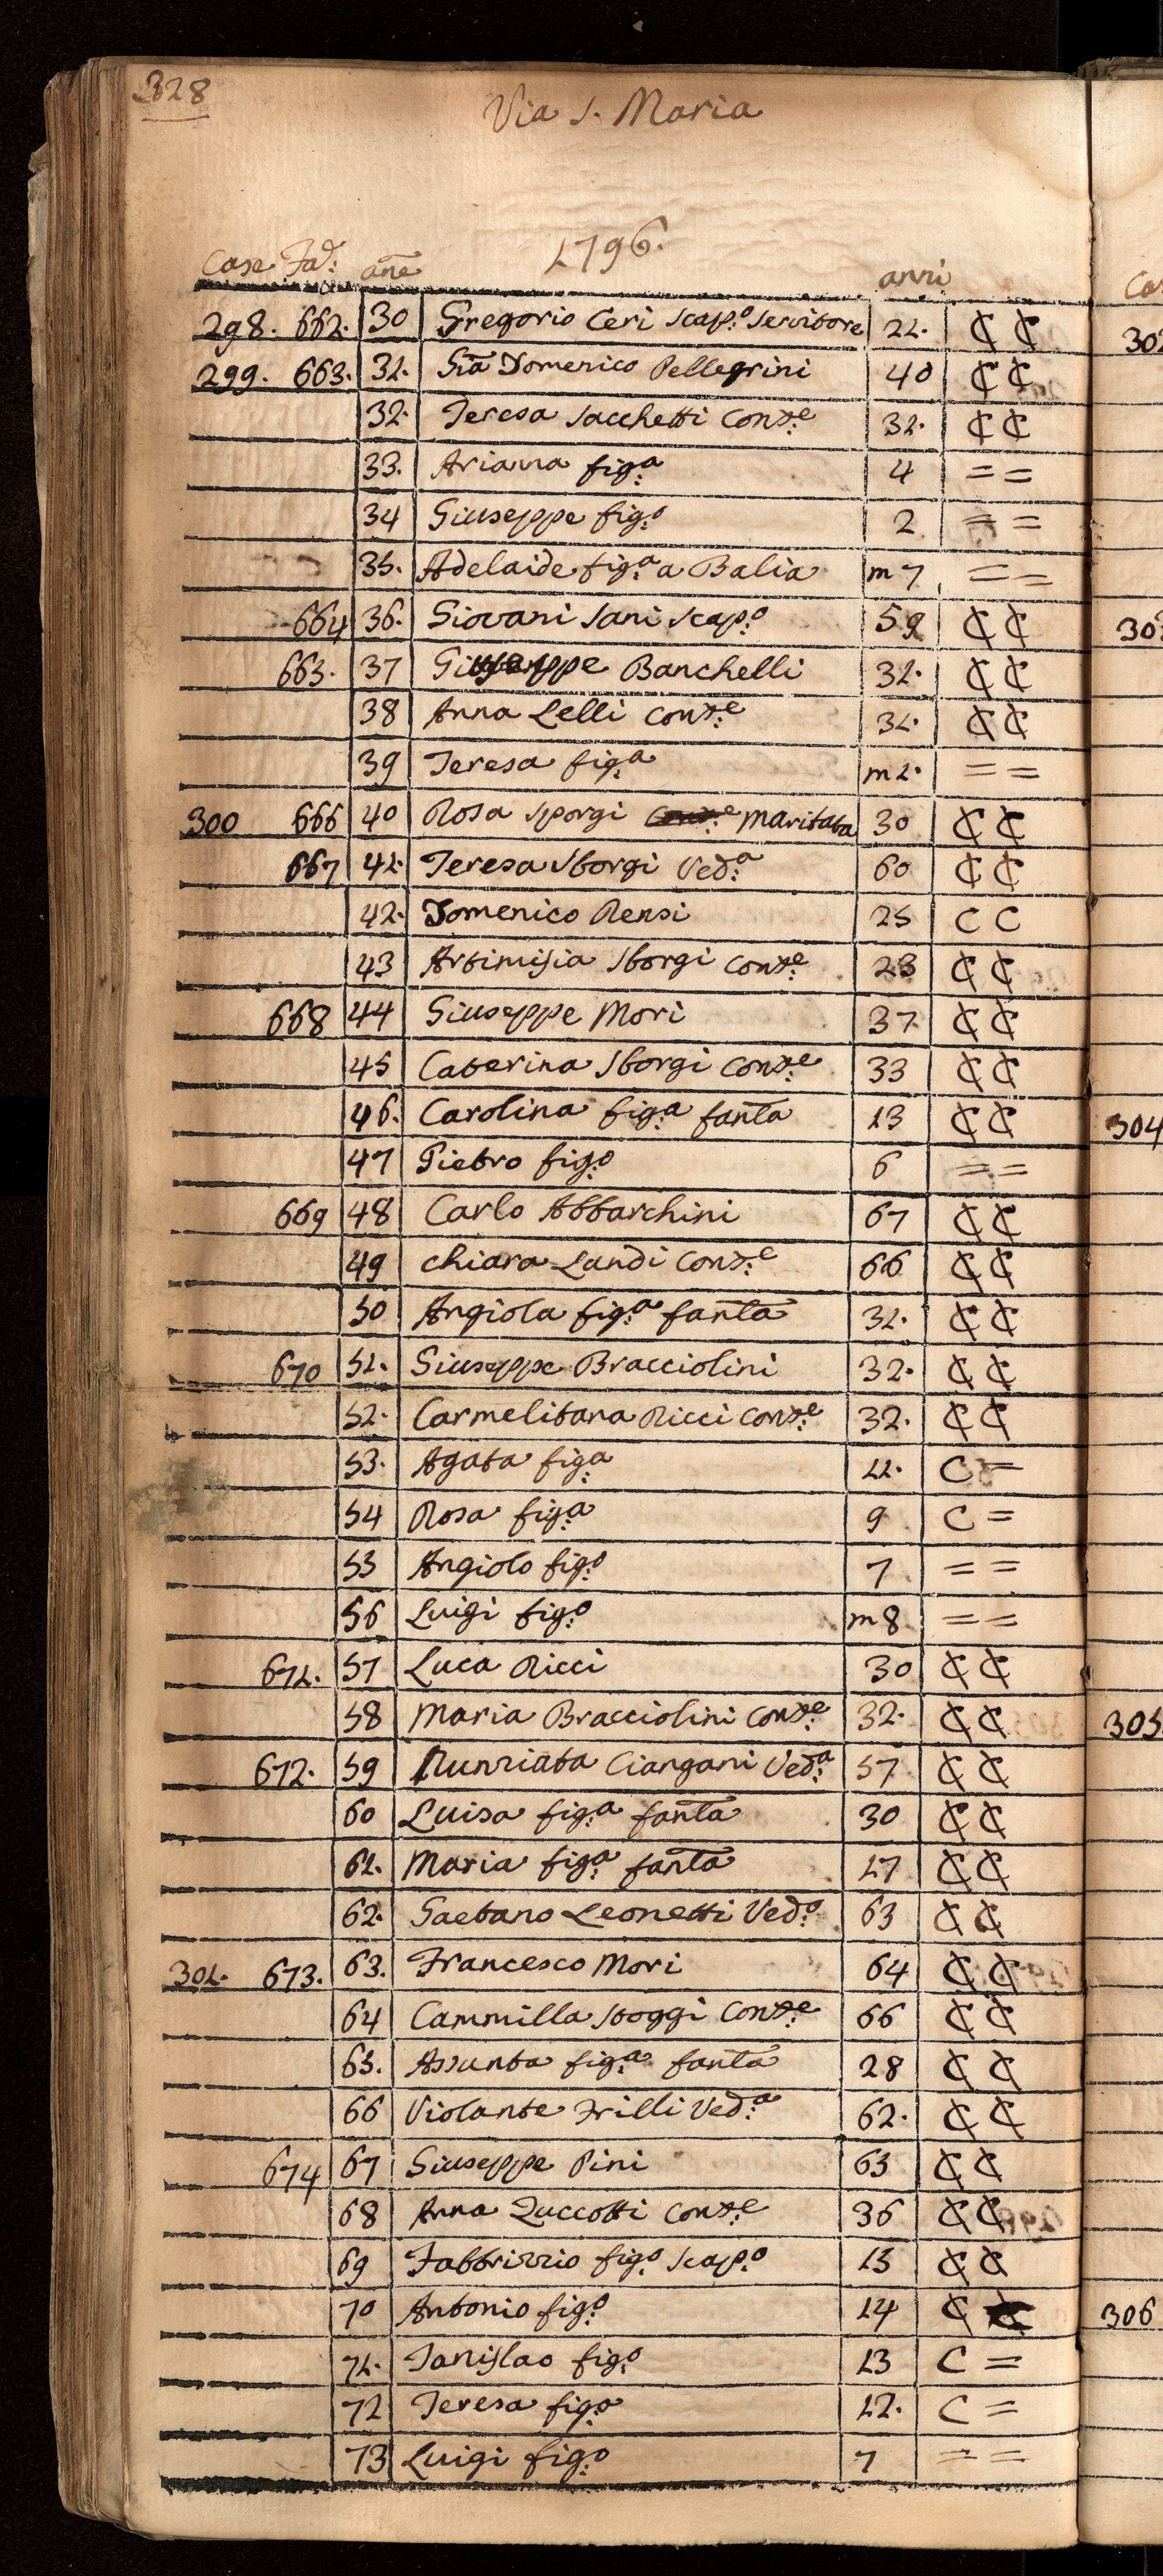 328
Via S. Maria
1796.
Case Fa.e: añe anni
298. 662. 30 Gregorio Ceri Scap.o Servitore 21. C C
299. 663. 31. Gia Domenico Pellegrini 40 C C
32. Teresa Sacchetti Cons.e 31. C C
33. Arianna fig.a 4 = =
34 Giuseppe fig.o 2 = =
35. Adelaide fig.a a Balia m 7 = =
664 36. Giovani Sani Scap.o 59 C C
665. 37 Giuseppe Banchelli 31. C C
38 Anna Lelli Cons.e 31. C C
39 Teresa fig.a m1. = =
300 666 40 Rosa Sborgi Cons.e Maritata 30 C C
667 41. Teresa Sborgi Ved.a 60 C C
42. Domenico Rensi 25 C C
43 Artimisia Sborgi Cons.e 23 C C
668 44 Giuseppe Mori 37 C C
45 Caterina Sborgi Cons.e 33 C C
46. Carolina fig.a fanta 13 C C
47 Pietro fig.o 6 = =
669 48 Carlo Abbarchini 67 C C
49 Chiara Landi Cons.e 66 C C
50 Angiola fig.a fanta 31. C C
670 51. Giuseppe Bracciolini 32. C C
52. Carmelitana Ricci Cons.e 32. C C
53. Agata fig.a 11. C =
54 Rosa fig.a 9 C =
55 Angiolo fig.o 7 = =
56 Luigi fig.o m 8 = =
671. 57 Luca Ricci 30 C C
58 Maria Bracciolini Cons.e 32. C C
672. 59 Nunziata Ciangani Ved.a 57 C C
60 Luisa fig.a fanta 30 C C
61. Maria fig.a fanta 17 C C
62. Gaetano Leonetti Ved.o 63 C C
301. 673. 63. Francesco Mori 64 C C
64 Cammilla Stoggi Cons.e 66 C C
65. Assunta fig.a fanta 28 C C
66 Violante Frilli Ved.a 62. C C
674 67 Giuseppe Pini 63 C C
68 Anna Zuccotti Cons.e 36 C C
69 Fabbrizzio fig.o Scap.o 15 C C
70 Antonio fig.o 14 C C
71. Tanislao fig.o 13 C =
72 Teresa fig.a 12. C =
73 Luigi fig.o 7 = =
304
306